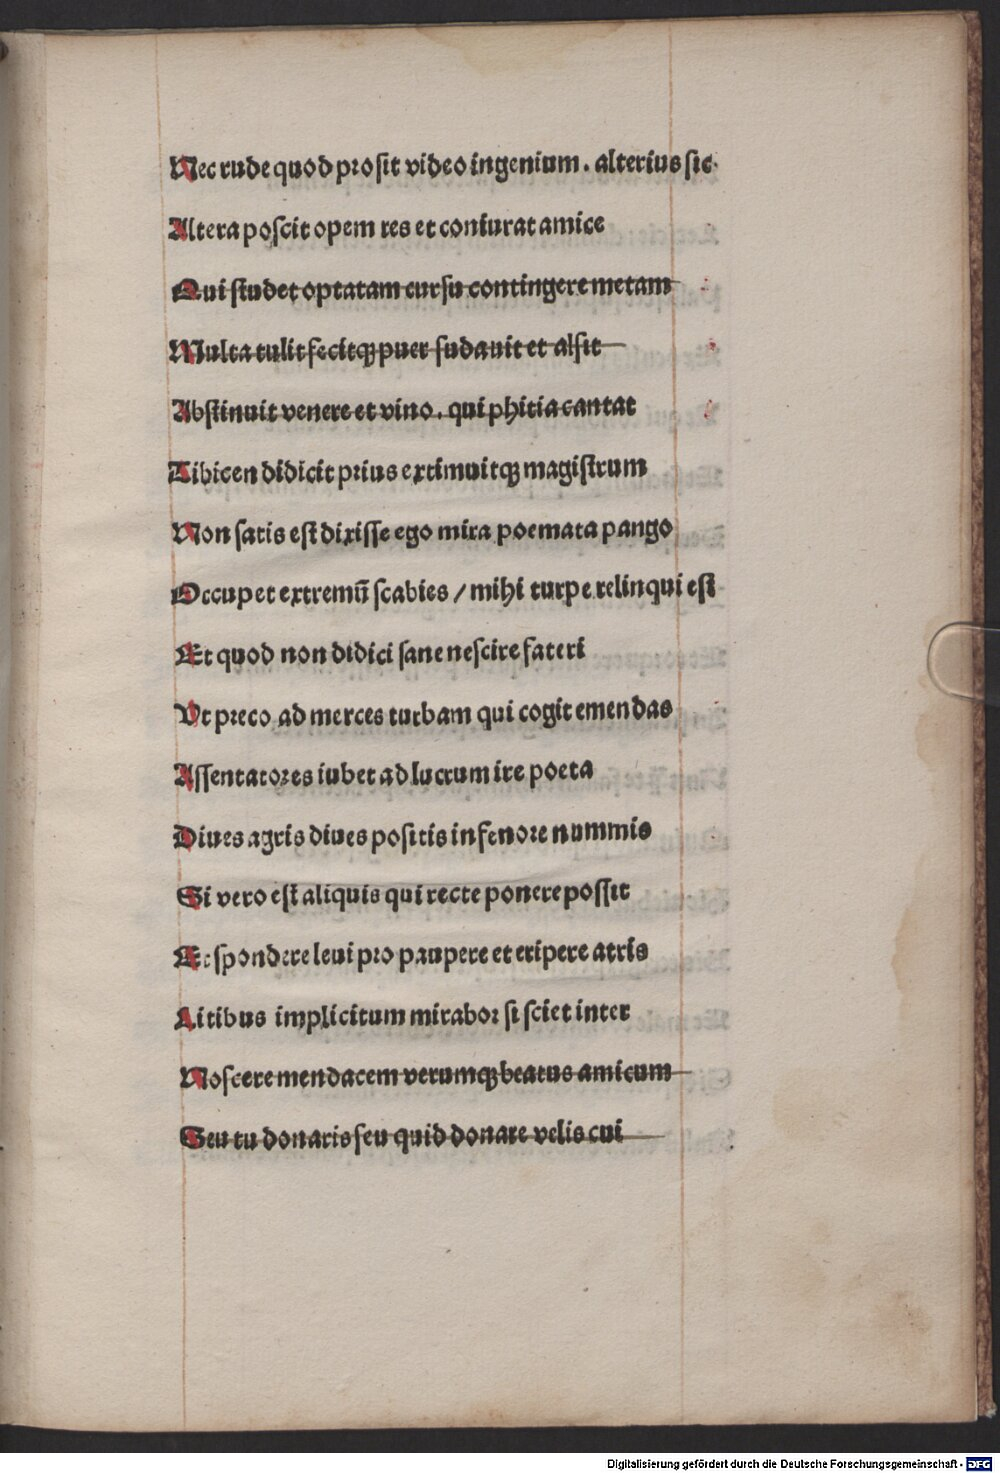 Nec rude quod prosit video ingenium. alterius sic.
Altera poscit opem res et coniurat amice
Qui studet optatam cursu contingere metam
Multa tulit fecitqꝫ puer sudauit et alsit
Abstinuit venere et vino. qui phitia cantat
Tibicen didicit prius extimuitqꝫ magistrum
Non satis est dixisse ego mira poemata pango
Occupet extremū scabies / mihi turpe relinqui est
Et quod non didici sane nescire fateri
Vt preco ad merces turbam qui cogit emendas
Assentatores iubet ad lucrum ire poeta
Diues agris diues positis in fenore nummis
Si vero est aliquis qui recte ponere possit
Respondere leui pro paupere et eripere atris
Litibus implicitum mirabor si sciet inter
Noscere mendacem verumqꝫ beatus amicum
Seu tu donaris seu quid donare velis cui
Digitalisierung gefördert durch die Deutsche Forschungsgemeinschaft - DFG